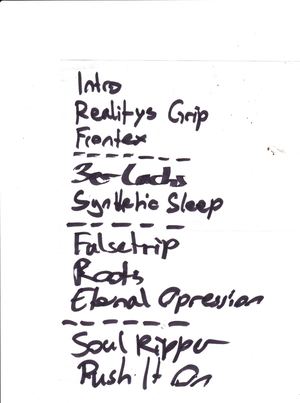 Intro
Realitys Grip
Frontex
Synthetic Sleep
Falsetrip
Roots
Eternal Opression
Soul Ripper
Push It On